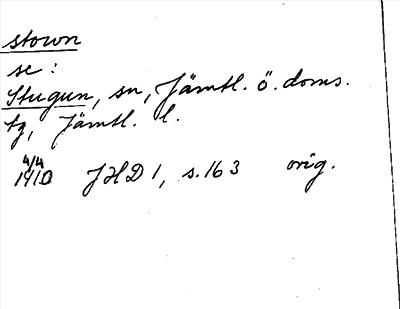 stown
se:
Stugun, sn, Jämtl. ö. doms.
tg, Jämtl. l.
4/4
1410 JHD 1, s. 163 orig.